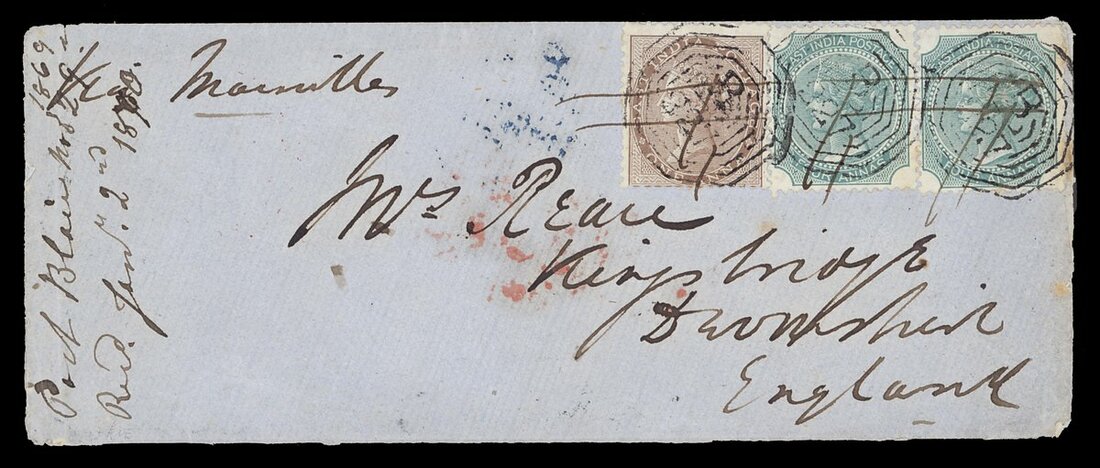 Via Marseilles
Mrs Reare
Kingsbridge
Devonshire
England
Port Blair Nov 29 1869
Recd. Jany. 2nd 1870.
EAST INDIA POSTAGE
ONE ANNA
EAST INDIA POSTAGE
FOUR ANNAS
EAST INDIA POSTAGE
FOUR ANNAS
B
B
B